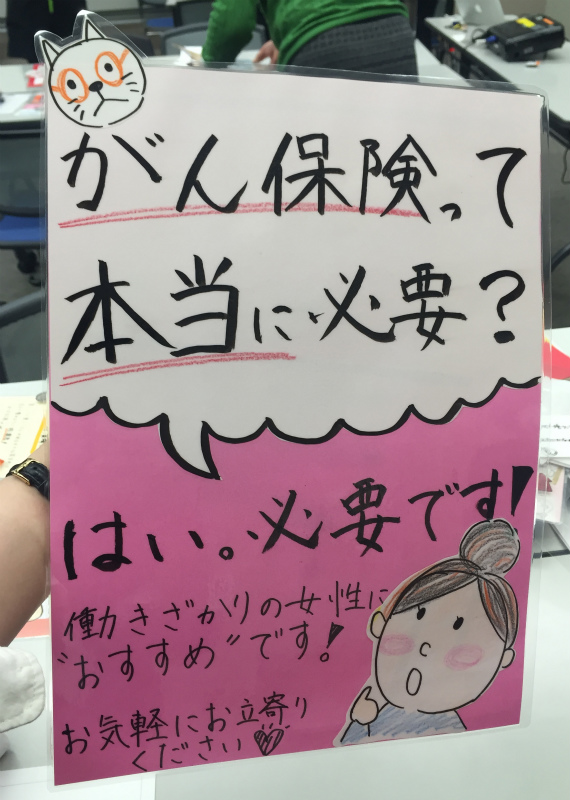 がん保険って
本当に必要?
はい。必要です!
働きざかりの女性に
"おすすめ"です!
お気軽にお立寄り
ください♡